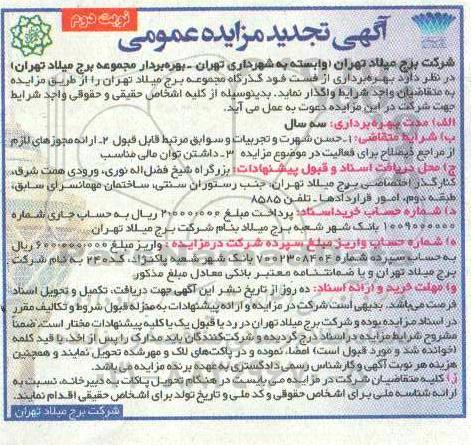 نوبت دوم
آگهی تجدید مزایده عمومی
شرکت برج میلاد تهران (وابسته به شهرداری تهران - بهره‌بردار مجموعه برج میلاد تهران)
در نظر دارد بهره‌برداری از فست فود گذرگاه مجموعه برج میلاد تهران را از طریق مزایده
به متقاضیان واجد شرایط واگذار نماید. بدینوسیله از کلیه اشخاص حقیقی و حقوقی واجد شرایط
جهت شرکت در این مزایده دعوت به عمل می آید.
الف) مدت بهره‌برداری: سه سال
ب) شرایط متقاضی: ۱- حسن شهرت و تجربیات و سوابق مرتبط قابل قبول ۲- ارائه مجوزهای لازم
از مراجع ذیصلاح برای فعالیت در موضوع مزایده ۳- داشتن توان مالی مناسب
ج) محل دریافت اسناد و قبول پیشنهادات: بزرگراه شیخ فضل‌اله نوری، ورودی همت شرق،
کنارگذر اختصاصی برج میلاد تهران، جنب رستوران سنتی، ساختمان مهمانسرای سابق،
طبقه دوم، امور قراردادها - تلفن ۸۵۸۵
د) شماره حساب خرید اسناد: پرداخت مبلغ ۲۰۰۰۰۰۰ ریال به حساب جاری شماره
۱۰۰۹۰۰۰۰۰۰ بانک شهر شعبه میلاد بنام شرکت برج میلاد تهران
ه) شماره حساب واریز مبلغ سپرده شرکت در مزایده: واریز مبلغ ۶۰۰۰۰۰۰۰۰ ریال
به حساب سپرده شماره ۷۰۰۲۳۰۸۴۰۴ بانک شهر شعبه پاکنژاد، کد ۲۴۰ به نام شرکت
برج میلاد تهران و یا ضمانتنامه معتبر بانکی معادل مبلغ مذکور
و) مهلت خرید و ارائه اسناد: ده روز از تاریخ نشر این آگهی جهت دریافت، تکمیل و تحویل اسناد
فرصت می‌باشد. بدیهی است شرکت در مزایده و ارائه پیشنهادات به منزله قبول شروط و تکالیف مقرر
در اسناد مزایده بوده و شرکت برج میلاد تهران در رد یا قبول یک یا کلیه پیشنهادات مختار است. ضمناً
مشروح شرایط مزایده در اسناد درج گردیده و شرکت‌کنندگان باید مدارک را پس از اخذ با قید کلمه
(خوانده شد و مورد قبول است) امضا، نموده و در پاکت‌های لاک و مهر شده تحویل نمایند و همچنین
هزینه هر نوبت آگهی و کارشناس رسمی دادگستری به عهده برنده مزایده می‌باشد.
ز) کلیه متقاضیان شرکت در مزایده می بایست در هنگام تحویل پاکات به دبیرخانه، نسبت به
ارائه شناسه ملی برای اشخاص حقوقی و کد ملی و تاریخ تولد برای اشخاص حقیقی اقدام نمایند.
شرکت برج میلاد تهران